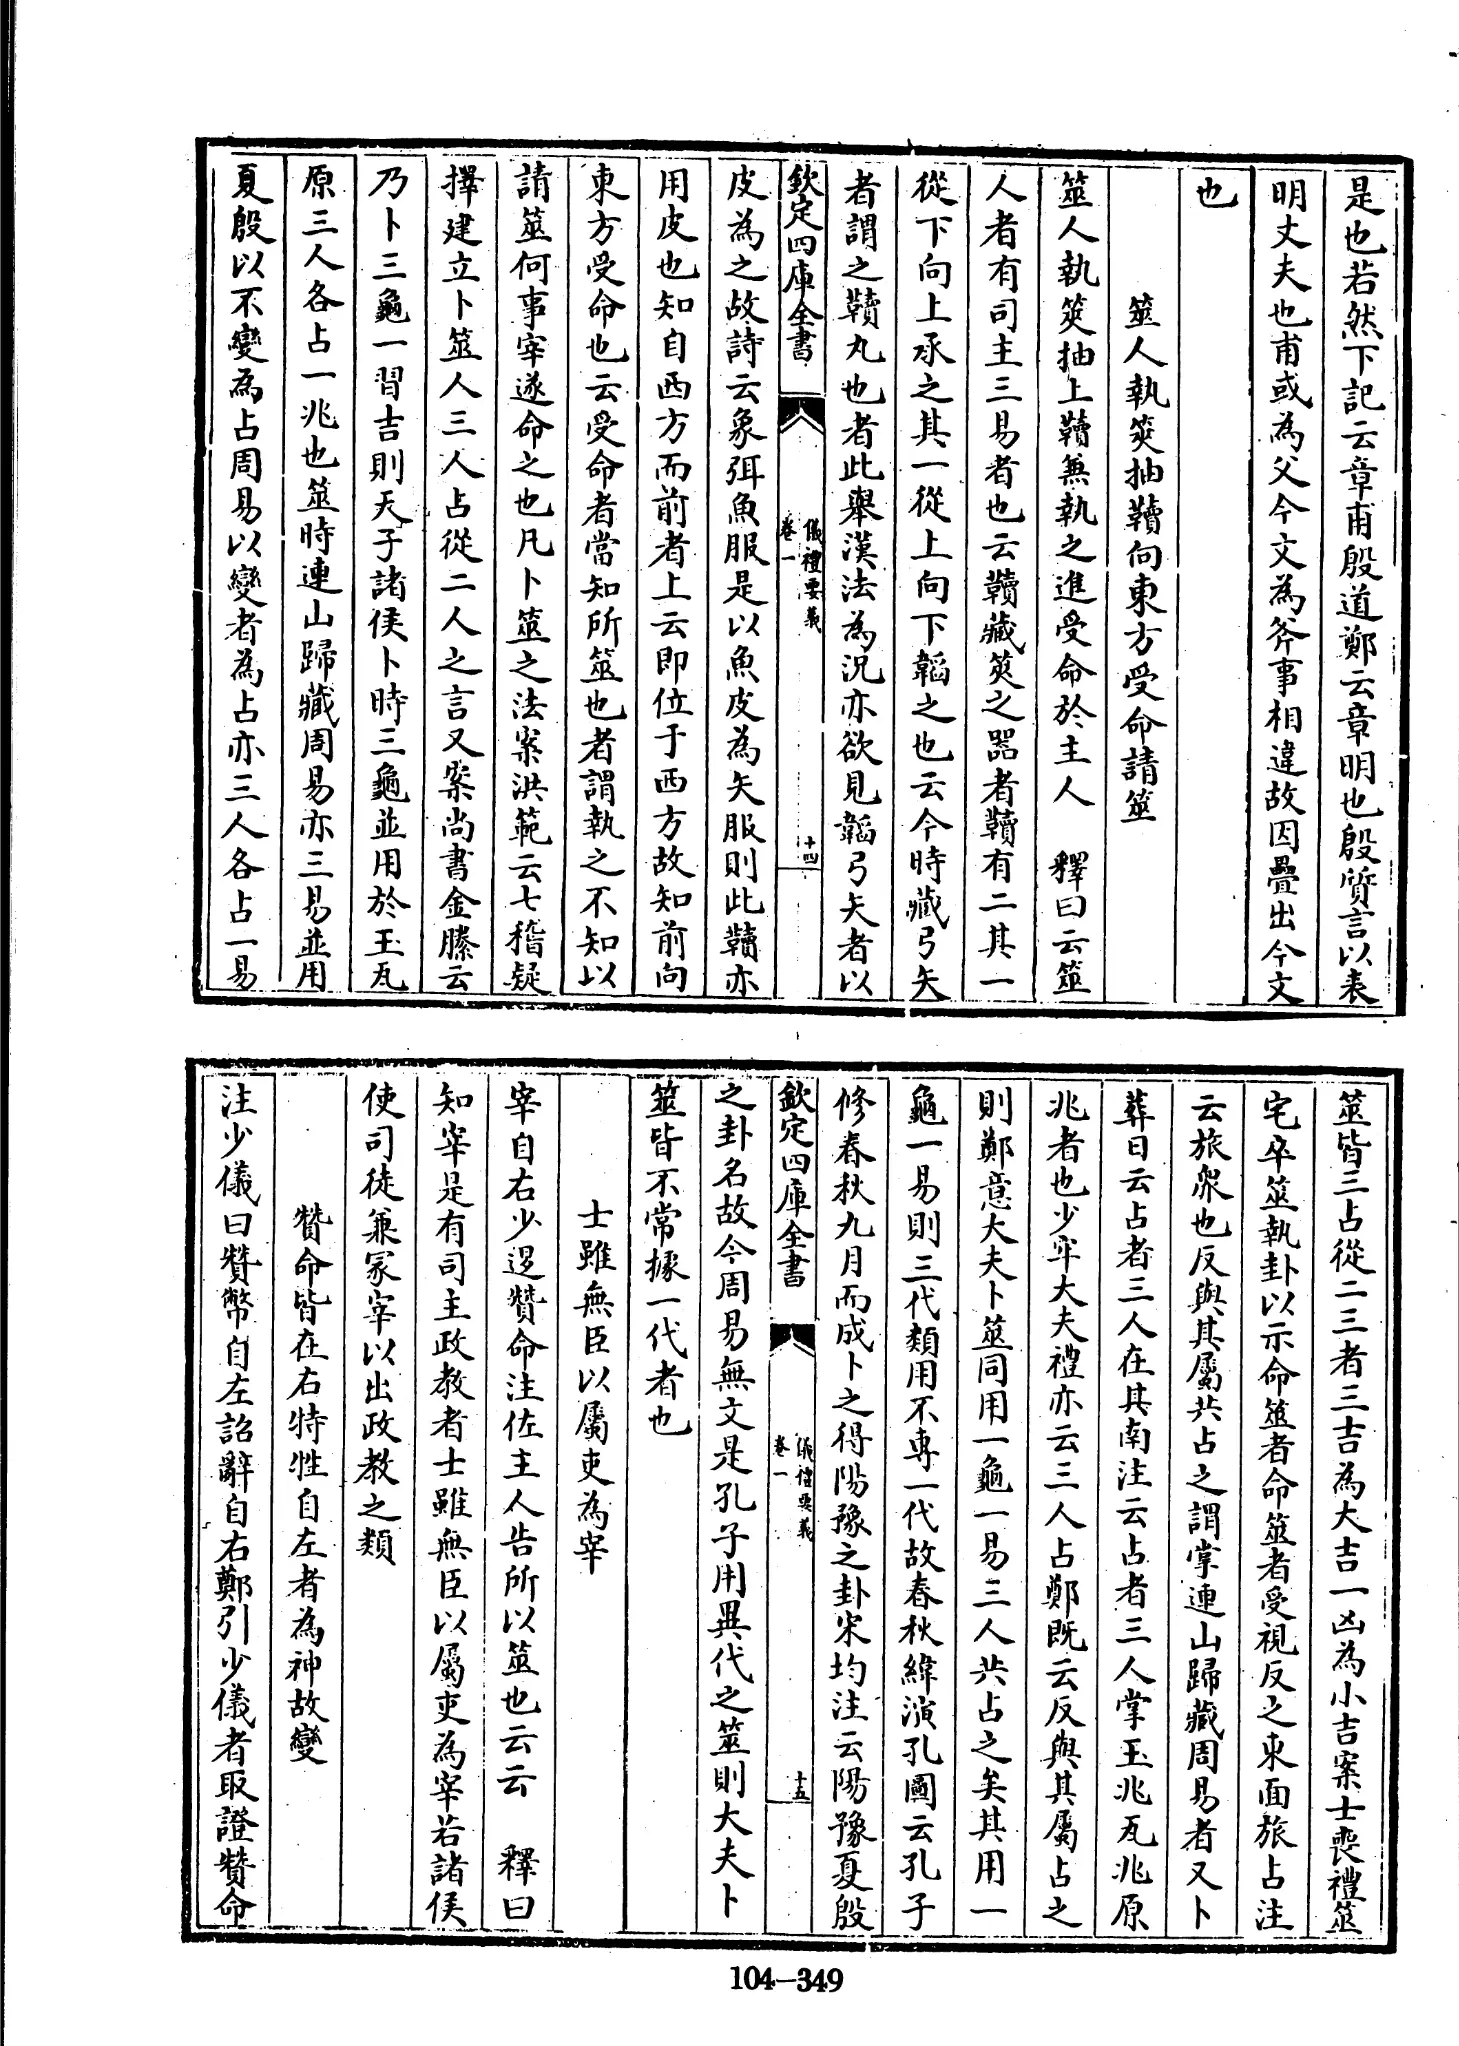 是也若然下記云章甫殷道鄭云章明也殷質言以表
明丈夫也甫或為父今文為斧事相違故因疊出今文
也
筮人執筴抽韇向東方受命請筮
筮人執筴抽上韇兼執之進受命於主人 釋曰云筮
人者有司主三易者也云韇藏筴之器者韇有二其一
從下向上承之其一從上向下韜之也云今時藏弓矢
者謂之韇丸也者此舉漢法為況亦欲見韜弓矢者以
欽定四庫全書 儀禮要義 卷一 十四
皮為之故詩云象弭魚服是以魚皮為矢服則此韇亦
用皮也知自西方而前者上云即位于西方故知前向
東方受命也云受命者當知所筮也者謂執之不知以
請筮何事宰遂命之也凡卜筮之法案洪範云七稽疑
擇建立卜筮人三人占從二人之言又案尚書金縢云
乃卜三龜一習吉則天子諸侯卜時三龜並用於玉瓦
原三人各占一兆也筮時連山歸藏周易亦三易並用
夏殷以不變為占周易以變者為占亦三人各占一易
筮皆三占從二三者三吉為大吉一凶為小吉案士喪禮筮
宅卒筮執卦以示命筮者命筮者受視反之東面旅占注
云旅眾也反與其屬共占之謂掌連山歸藏周易者又卜
葬日云占者三人在其南注云占者三人掌玉兆瓦兆原
兆者也少牢大夫禮亦云三人占鄭既云反與其屬占之
則鄭意大夫卜筮同用一龜一易三人共占之矣其用一
龜一易則三代類用不專一代故春秋緯演孔圖云孔子
修春秋九月而成卜之得陽豫之卦宋均注云陽豫夏殷
欽定四庫全書 儀禮要義 卷一 十五
之卦名故今周易無文是孔子用異代之筮則大夫卜
筮皆不常據一代者也
士雖無臣以屬吏為宰
宰自右少退贊命注佐主人告所以筮也云云 釋曰
知宰是有司主政教者士雖無臣以屬吏為宰若諸侯
使司徒兼冢宰以出政教之類
贊命皆在右特牲自左者為神故變
注少儀曰贊幣自左詔辭自右鄭引少儀者取證贊命
104-349